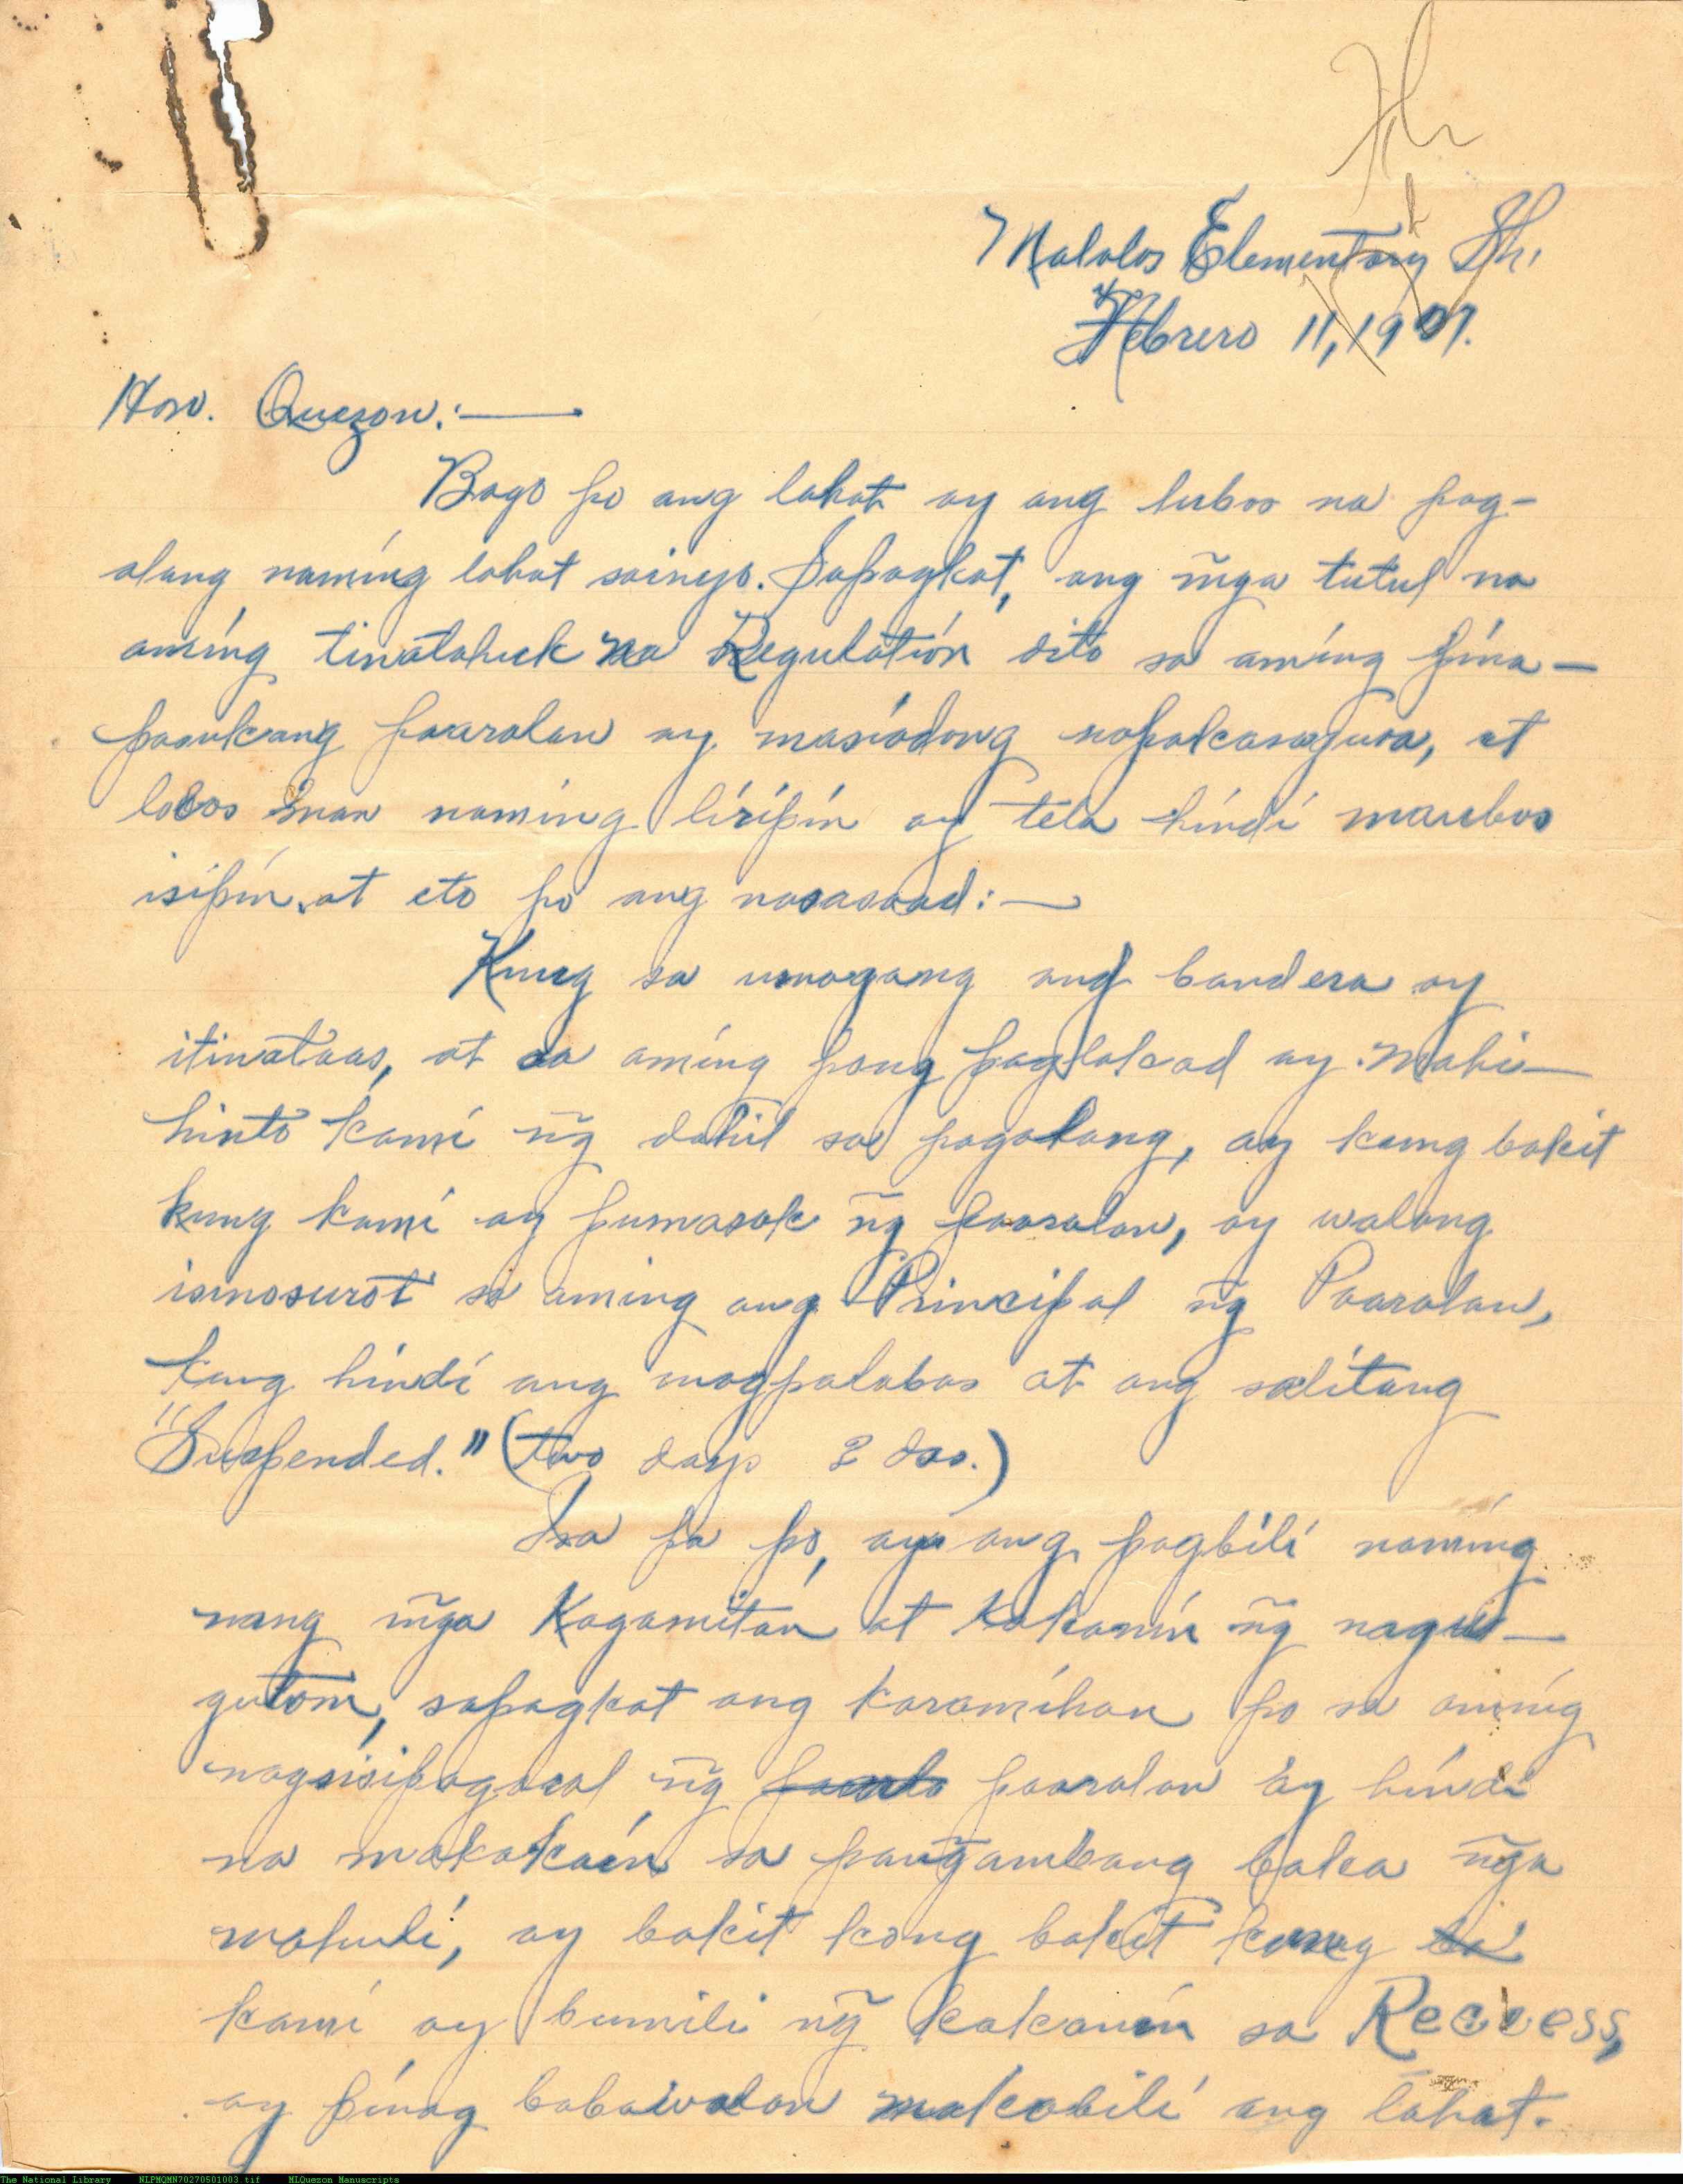 Malolos Elementary Sh.
Febrero 11, 1907.
Hon. Quezon.:—
Bago po ang lahat ay ang lubos na pag-
alang naming lahat sainyo. Sapagkat, ang m̃ga tutul na
aming tinatahuck na Regulation dito sa aming pina-
pasukang paaralan ay masiadong napakasagwa, at
lobos man naming liripin ay tela hindi maubos
isipin, at eto po ang nasasaad:—
Kung sa umagang ang bandera ay
itinataas, at sa aming pong paglakad ay mahi-
hinto kami ñg dahil sa pagalang, ay kung bakit
kung kami ay pumasok ñg paaralan, ay walang
isinosurot sa aming ang Principal ñg Paaralan,
kung hindi ang magpalabas at ang salitang
"Suspended." (two days 2 das.)
Isa pa po, ay ang pagbili naming
nang m̃ga Kagamitan at kakanin ñg nagu-
gutom, sapagkat ang karamihan po sa aming
nagsisipagaral ñg paaralan ay hindi
na makakain sa pañgambang baka ñga
mahuli, ay bakit kong bakit kung
kami ay bumili ñg kakanin sa Reccess,
ay pinag babawalan makabili ang lahat.
The National Library NLPMQMN70270501003.tif MLQuezon Manuscripts